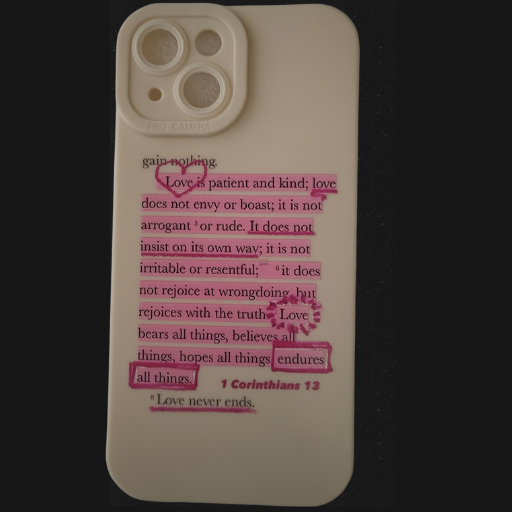 PRO CAMERA
gain nothing.
Love is patient and kind; love
does not envy or boast; it is not
arrogant ⁵ or rude. It does not
insist on its own way; it is not
irritable or resentful; ⁶ it does
not rejoice at wrongdoing, but
rejoices with the truth. Love
bears all things, believes all
things, hopes all things, endures
all things.
1 Corinthians 13
⁸ Love never ends.